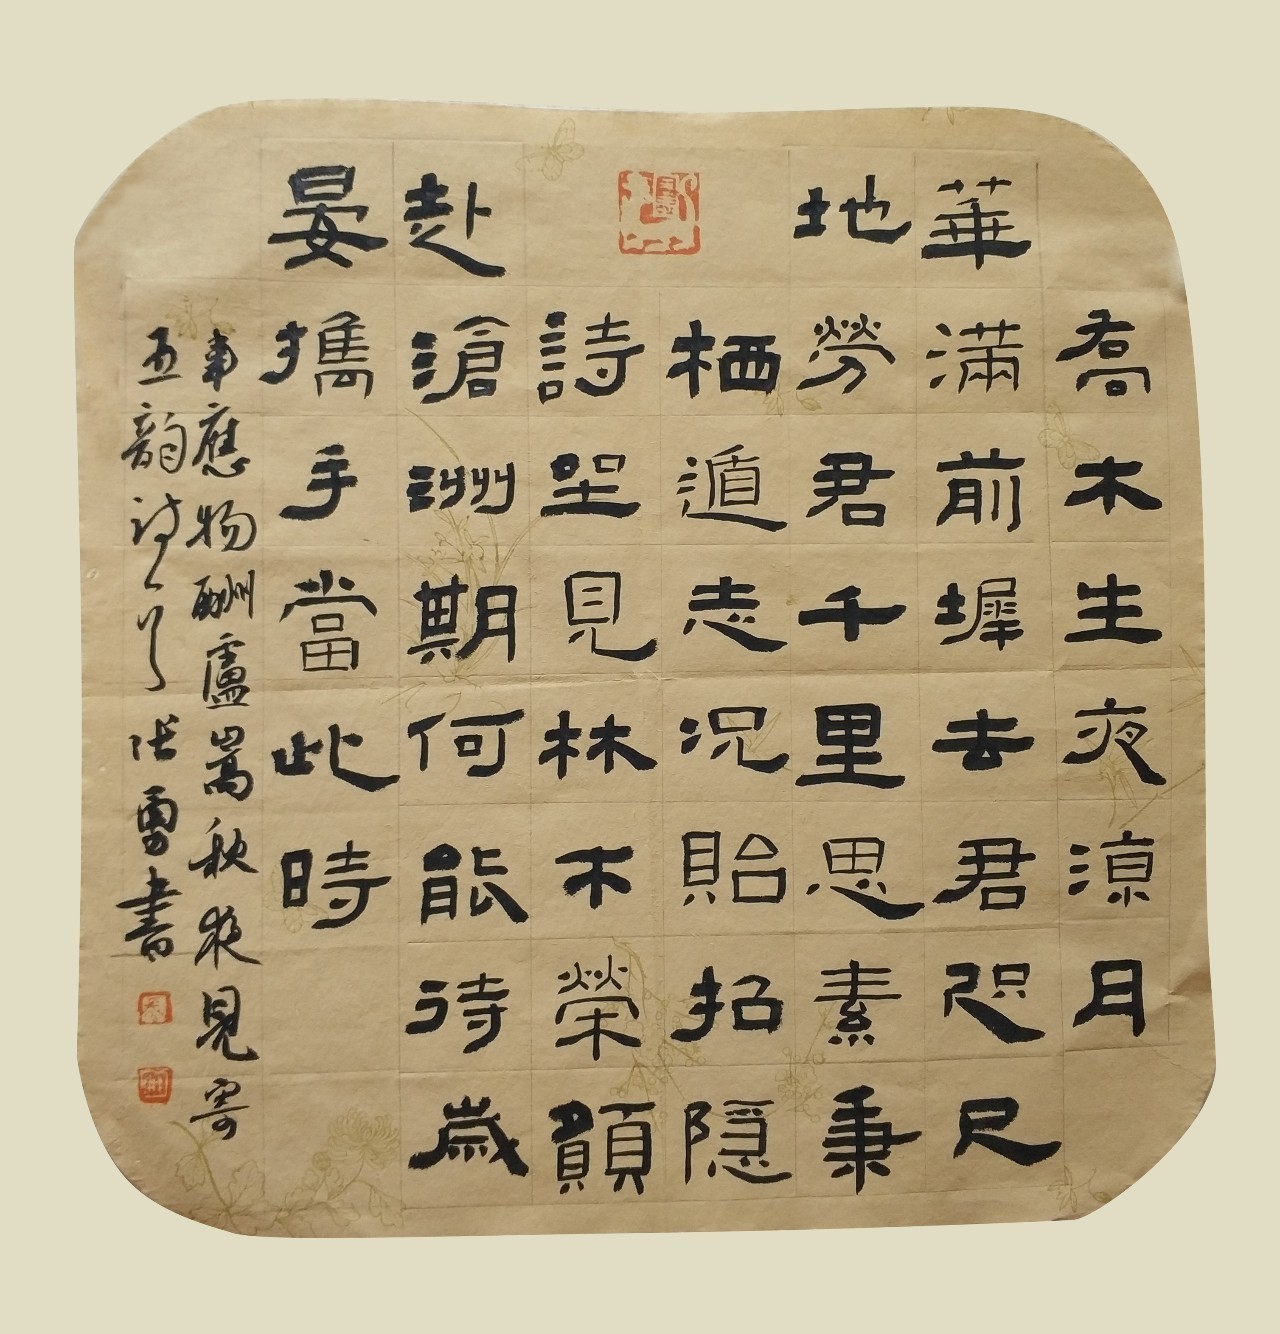 喬木生夜涼月
華滿前墀去君咫尺
地勞君千里思素秉
栖遁志况貽招隱
詩坐見林不榮願
赴滄洲期何能待歲
晏攜手當此時
韋應物酬盧嵩秋夜見寄
五韵诗一首张勇書